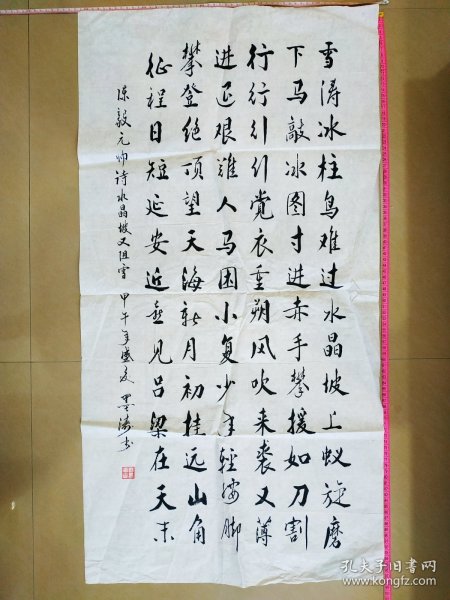 雪涛冰柱鸟难过水晶坡上蚁旋磨
下马敲冰图寸进赤手攀援如刀割
行行引引觉衣重朔风吹来裘又薄
进退艰难人马困小复少年輕脚
攀登绝顶望天海新月初挂远山角
征程日短延安近喜见吕梁在天末
陈毅元帅诗水晶坡又阻雪 甲午年盛夏 墨涛书
孔夫子旧书网
www.kongfz.com